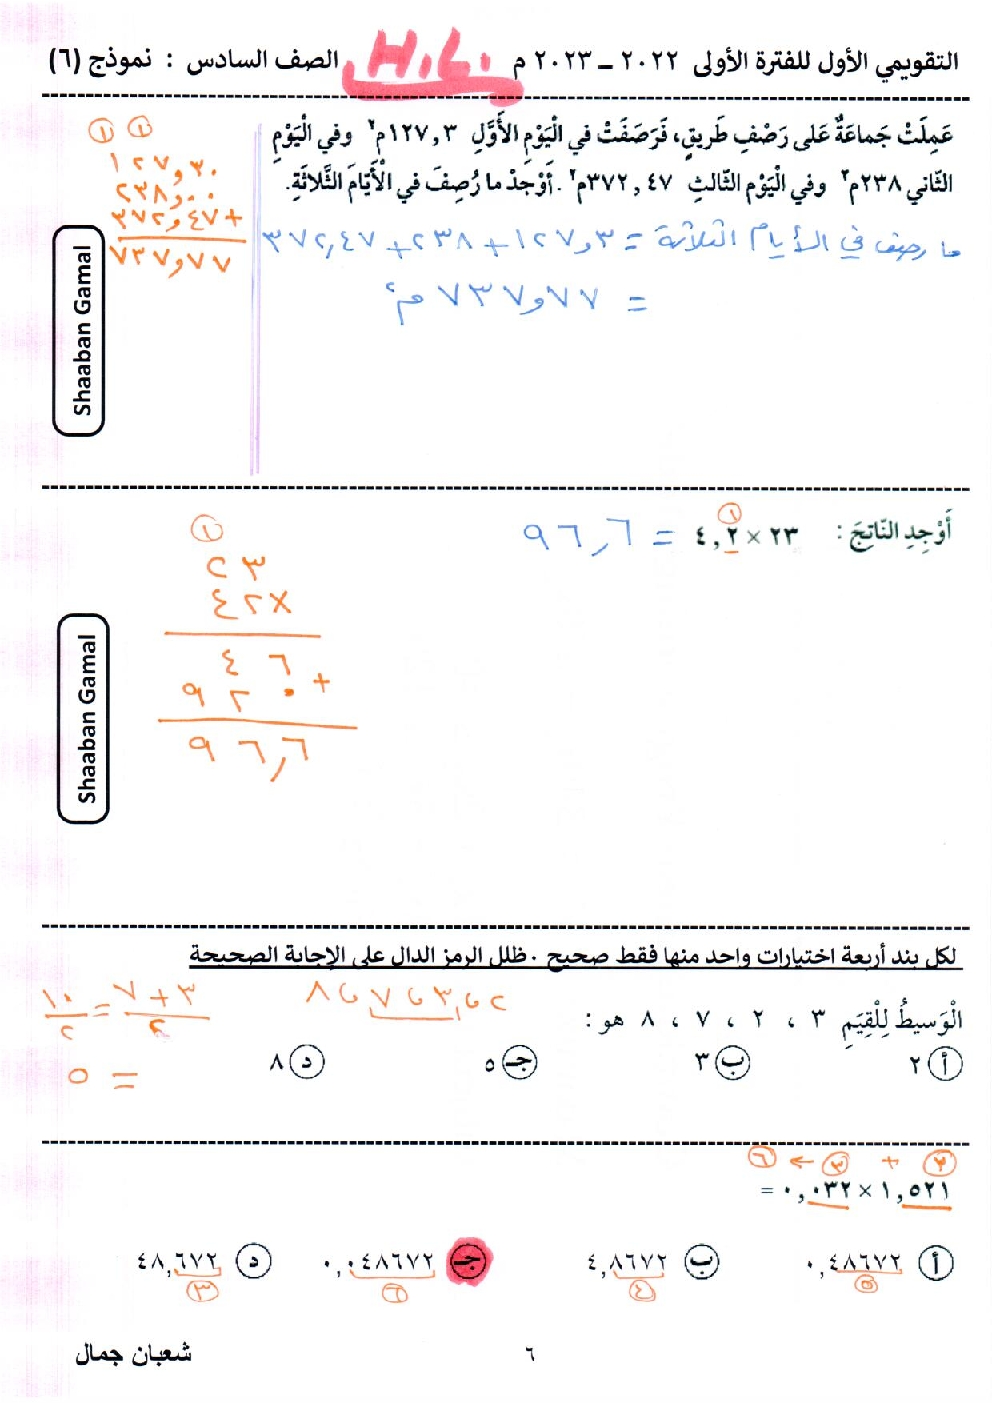 التقويمي الأول للفترة الأولى ٢٠٢٢ – ٢٠٢٣ م H.L. الصف السادس : نموذج (٦)
عَمِلَتْ جَماعَةٌ عَلى رَصْفِ طَريقٍ، فَرَصَفَتْ في الْيَوْمِ الأَوَّلِ ١٢٧,٣ م٢ وفي الْيَوْمِ
الثّاني ٢٣٨م٢ وفي الْيَوْم الثّالثِ ٣٧٢,٤٧م٢ . أَوْجَدْ ما رُصِفَ في الْأَيّامَ الثَّلاثَةِ.
ما رصف في الأيام الثلاثة = ١٢٧,٣ + ٢٣٨ + ٣٧٢,٤٧
= ٧٣٧,٧٧ م٢
١ ١
١٢٧,٣٠
٢٣٨,٠٠
٣٧٢,٤٧ +
٧٣٧,٧٧
Shaaban Gamal
أَوْجِدِ النّاتِجَ : ٢٣ × ٤,٢ = ٩٦,٦
١
١
٢٣
٤٢ ×
٤٦
٩٢٠ +
٩٦,٦
Shaaban Gamal
لكل بند أربعة اختيارات واحد منها فقط صحيح . ظلل الرمز الدال على الإجابة الصحيحة
٢ ، ٣ ، ٧ ، ٨
٣ + ٧ / ٢ = ١٠ / ٢
= ٥
الْوَسيطُ لِلْقِيَمِ ٣ ، ٢ ، ٧ ، ٨ هو :
أ ٢ ب ٣ جـ ٥ د ٨
٣ + ٣ → ٦
١,٥٢١ × ٠,٠٣٢ =
أ ٠,٤٨٦٧٢ ب ٤,٨٦٧٢ جـ ٠,٠٤٨٦٧٢ د ٤٨,٦٧٢
٥ ٤ ٦ ٣
٦
شعبان جمال